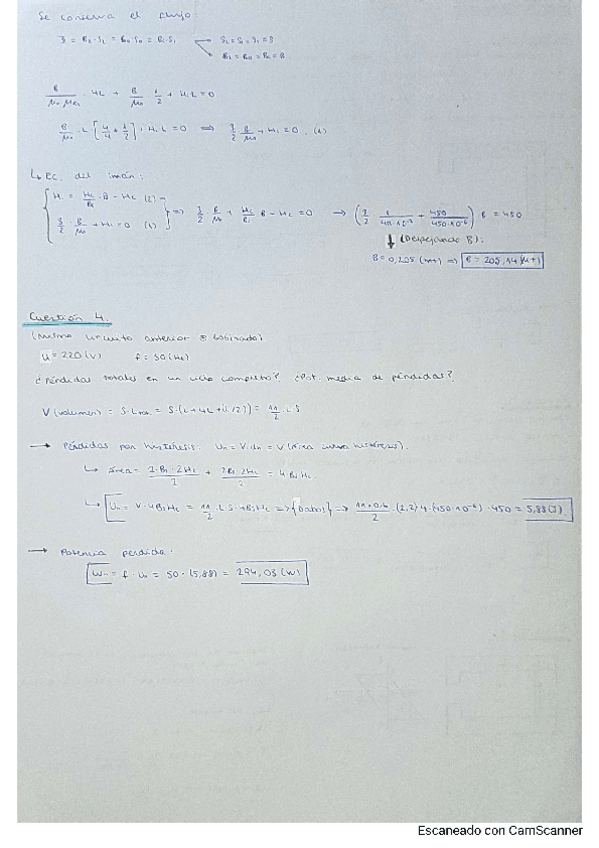 Se conserva el flujo:
Φ = B₂·S₂ = B₀·S₀ = B₁·S₁
S₂ = S₀ = S₁ = S
B₂ = B₀ = B₁ = B
B/(μ₀ μR₂) · 4L + B/μ₀ · 1/2 + H₁L = 0
B/μ₀ · L [4/4 + 1/2] + H₁L = 0 ⟹ 3/2 B/μ₀ + H₁ = 0 . (1)
↳ Ec. del imán:
H₁ = Hc/B₁ · B − Hc (2)
3/2 · B/μ₀ + H₁ = 0 (1)
⟹ 3/2 · B/μ₀ + Hc/B₁ B − Hc = 0 → (3/2 · 1/(4π·10⁻⁷) + 450/(450·10⁻⁶)) B = 450
↓ (Despejando B):
B = 0,205 (mT) ⟹ B = 205,14 (μT)
Cuestión 4.
(mismo circuito anterior bobinado)
U = 220 (V) f = 50 (Hz)
¿Pérdidas totales en un ciclo completo? ¿Pot. media de pérdidas?
V (volumen) = S·L = S·(L + 4L + L/2) = 11/2 · L S
→ Pérdidas por histéresis: Un = V·un = V (área curva histéresis).
↳ área = 2·B₁·2Hc/2 + 2B₁·2Hc/2 = 4 B₁ Hc
↳ Un = V·4B₁Hc = 11/2 · L S · 4B₁Hc ⟹ {Datos} ⟹ (2,2) 4·(450·10⁻⁶)·450 = 5,88 (J)
→ Potencia perdida:
Wn = f·Un = 50·(5,88) = 294,03 (W)
Escaneado con CamScanner